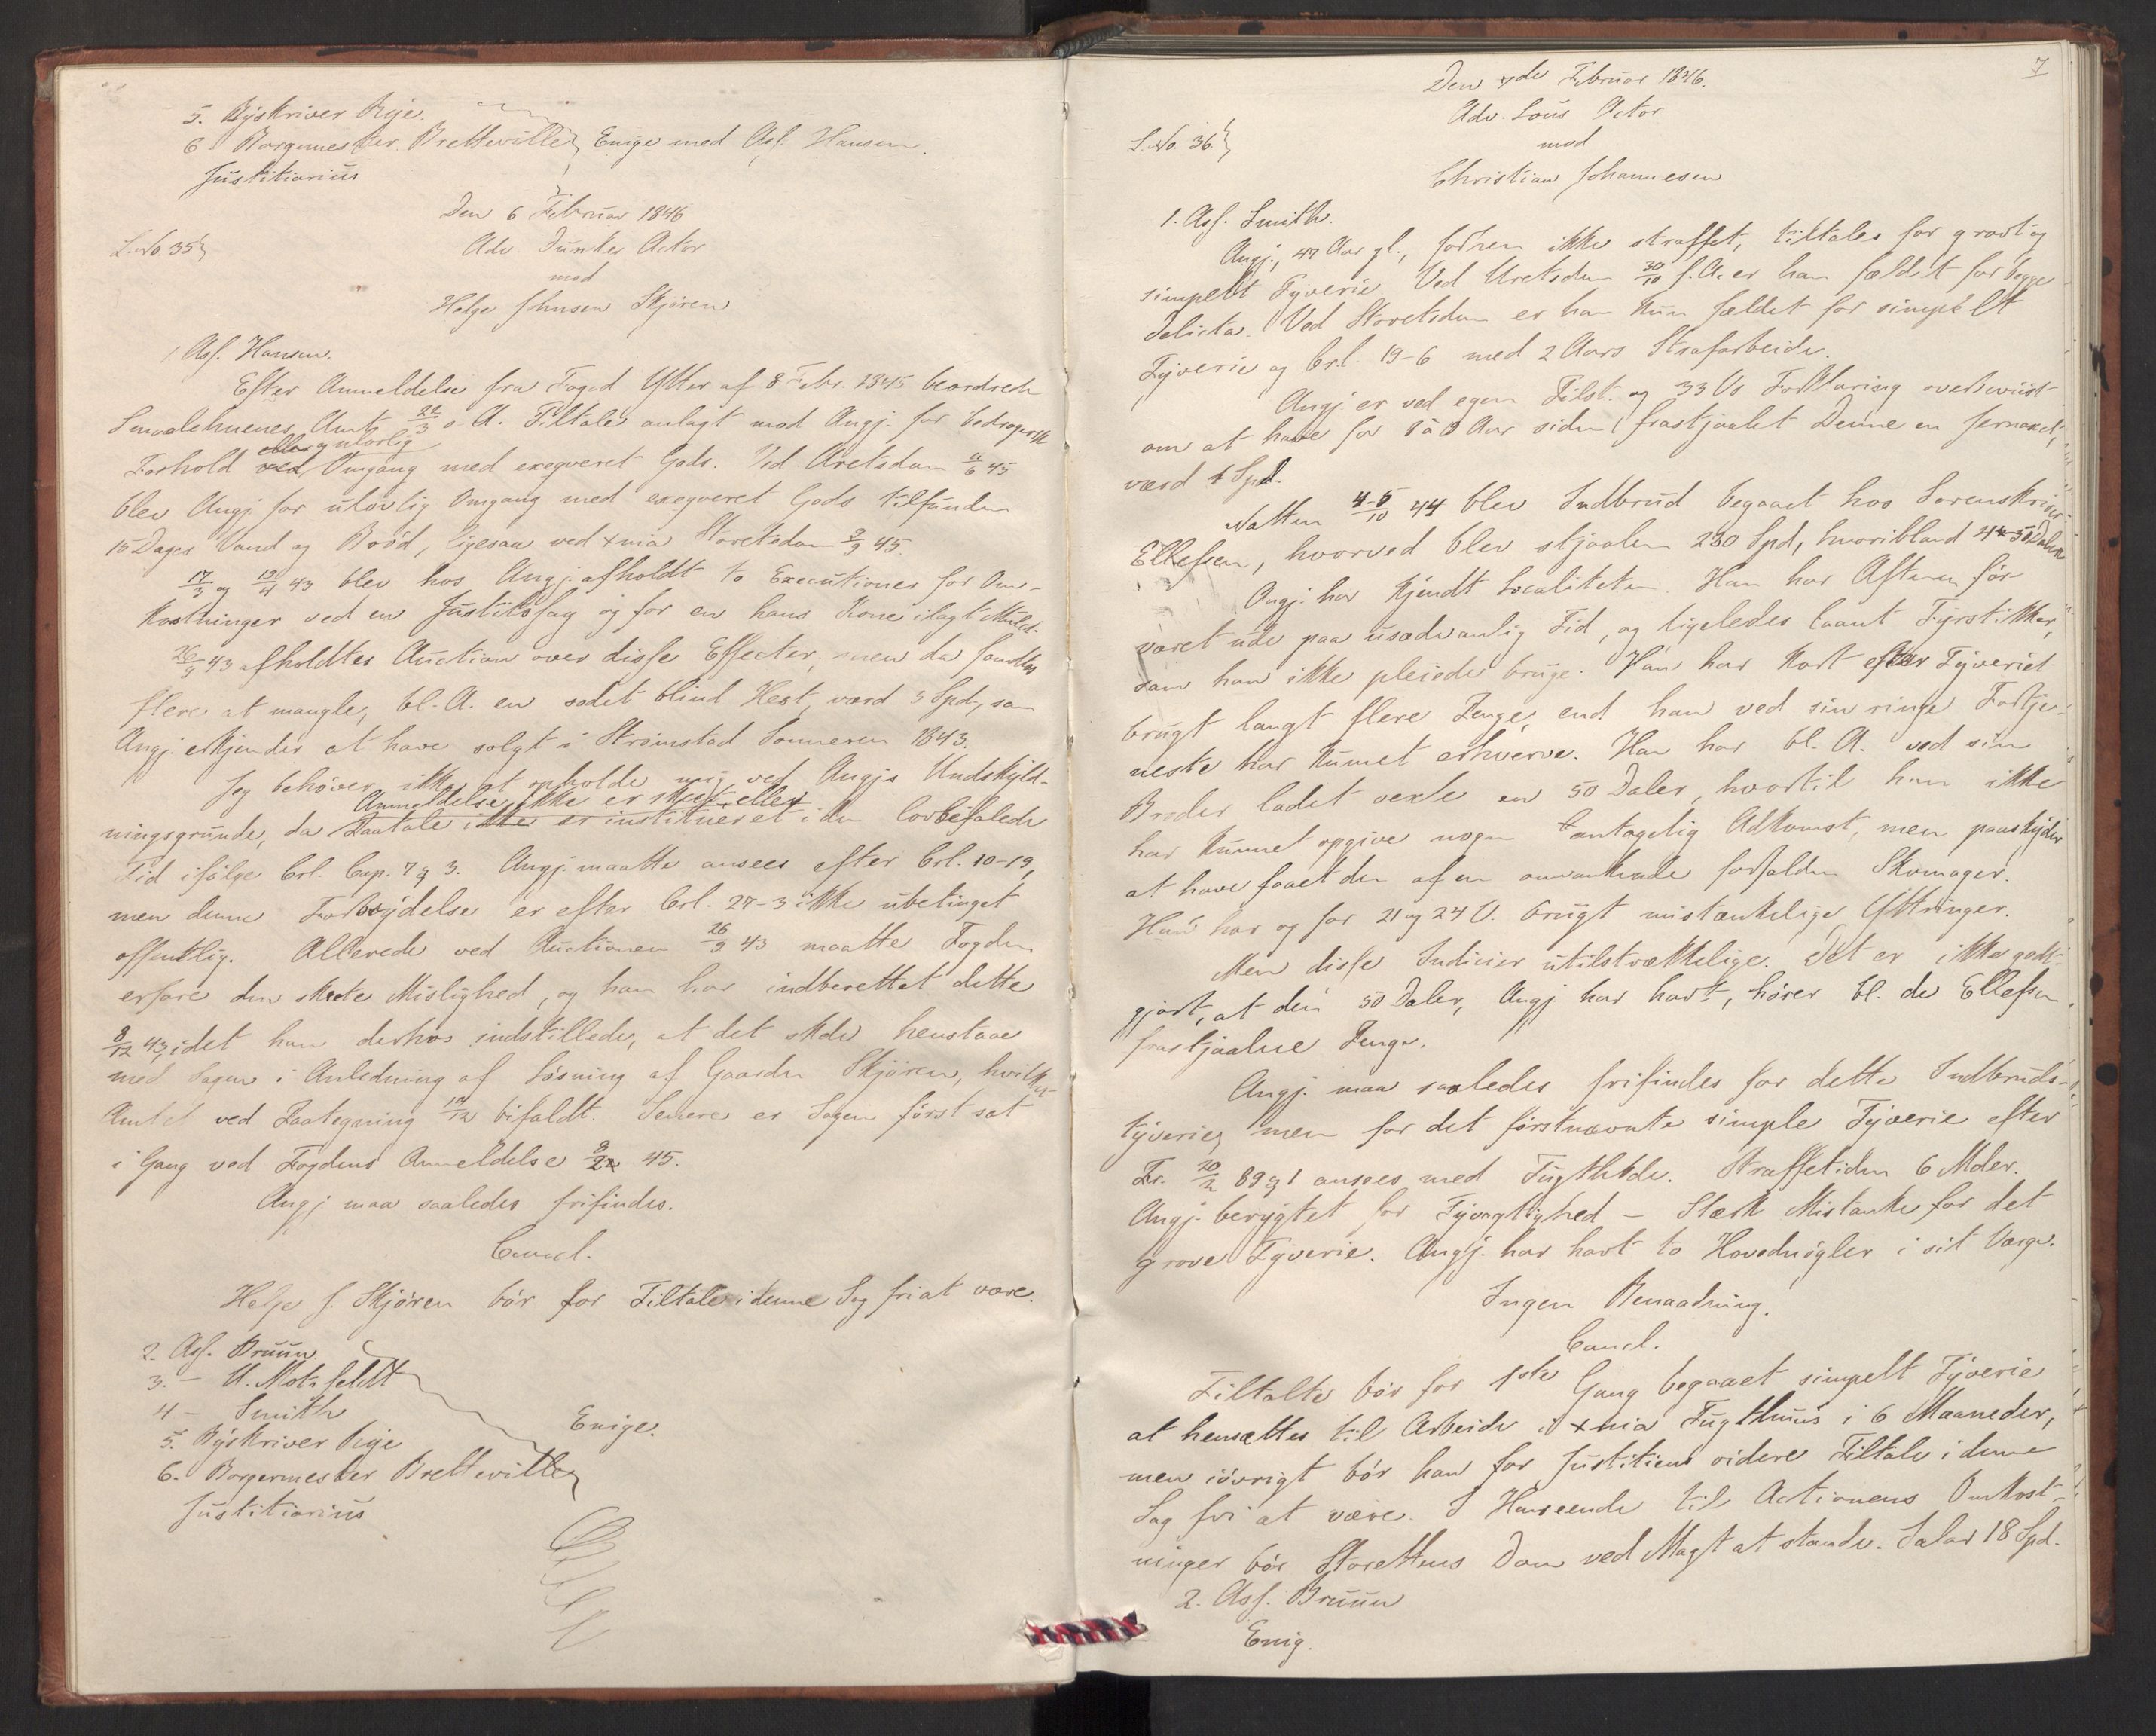 5. Byskriver Reje.
6 Borgemester Bretteville Enige med Ass. Hansen.
Justitiarius
Den 6 Februar 1846
L. No. 35
Adv Dunker Actor
mod
Helge Johnsen Skjören
1. Ass. Hansen.
Efter Anmeldelse fra Foged Ytter af 8 Febr. 1845 beordrede
Smaalehnenes Amt 22/3 s. A. Tiltale anlagt mod Angj. for bedragersk
Forhold eller ulovlig
ved Omgang med exeqveret Gods. Ved Uretsdom 11/6 45
blev Angj for ulovlig Omgang med exeqveret Gods tilfunden
15 Dages Vand og Bröd, ligesaa ved Xnia Storetsdom 9/9 45.
17/3 og 19/4 43 blev hos Angj. afholdt to Executioner for Om-
kostninger ved en Justitssag og for en hans Kone ilagt Mulct.
26/9 43 afholdtes Auction over disse Effecter, men da fandtes
flere at mangle, bl. A. en sodet blind Hest, værd 3 Spd., som
Angj. erkjender at have solgt i Strömstad Sommeren 1843.
Jeg behöver ikke at opholde mig ved Angjs Undskyld-
Anmeldelse ikke er skeet eller
ningsgrunde, da Paatale ikke er institueret i den lovbefalede
Tid ifölge Crl. Cap. 7 § 3. Angj. maatte ansees efter Crl. 10-19,
men denne Forbrydelse er efter Crl. 27-3 ikke ubetinget
offentlig. Allerede ved Auctionen 26/9 43 maatte Fogden
erfare den skeete Mislighed, og han har indberettet dette
8/12 43, idet han derhos indstillede, at det skulde henstaae
med Sagen i Anledning af Lösning af Gaarden Skjören, hvilket
Amtet ved Paategning 12/12 bifaldt. Senere er Sagen först sat
i Gang ved Fogdens Anmeldelse 8/2 45.
Angj maa saaledes frifindes.
Concl.
Helge J. Skjören bör for Tiltale i denne Sag fri at være.
2. Ass. Bruun.
3. – U. Motzfeldt
4 – Smith
Enige.
5. Byskriver Reje
6. Borgermester Bretteville
Justitiarius
7
Den 7de Februar 1846.
Adv. Lous Actor
L. No. 36
mod
Christian Johannesen
1. Ass. Smith.
Angj., 47 Aar gl., forhen ikke straffet, tiltales for grovt og
simpelt Tyverie. Ved Uretsdom 30/10 f. A. er han fældet for begge
Delicta. Ved Storetsdom er han kun fældet for simpelt
Tyverie og Crl. 19-6 med 2 Aars Strafarbeide.
Angj er ved egen Tilst. og 33 Vs Forklaring overbeviist
om at have for 8 à 9 Aar siden frastjaalet Denne en
værd 1 Spd.
Natten 4-5/10 44 blev Indbrud begaaet hos Sorenskriver
Ellefsen, hvorved blev stjaalen 230 Spd, hvoriblandt 4 50 Daler
Angj. har kjendt Localiteten. Han har Aftenen för
været ude paa usædvanlig Tid, og ligeledes laant Fyrstikker,
som han ikke pleiede bruge. Han har kort efter Tyveriet
brugt langt flere Penge, end han ved sin ringe Fortje-
neste har kunnet erhverve. Han har bl. A. ved sin
Broder ladet vexle en 50 Daler, hvortil han ikke
har kunnet opgive nogen antagelig Adkomst, men paaskyder
at have faaet den af en omvankende forfalden Skomager.
Han har og for 21 og 24 V. brugt mistænkelige Yttringer.
Men disse Indicier utilstrækkelige. Det er ikke godt-
gjort, at den 50 Daler, Angj har havt, hörer bl. de Ellefsen
frastjaalne Penge.
Angj. maa saaledes frifindes for dette Indbruds-
tyverie, men for det förstnævnte simple Tyverie efter
Fr. 20/2 89 § 1 ansees med Tugthde. Straffetiden 6 Mdr.
Angj. berygtet for Tyvagtighed – Stærk Mistanke for det
grove Tyverie. Angj. har havt to Hovednögler i sit Værge.
Ingen Benaadning.
Concl.
Tiltalte bör for 1ste Gang begaaet simpelt Tyverie
at hensættes til Arbeide i Xnia Tugthuus i 6 Maaneder,
men iövrigt bör han for Justitiens videre Tiltale i denne
Sag fri at være. I Henseende til Actionens Omkost-
ninger bör Storettens Dom ved Magt at stande. Salar 18 Spd.
2. Ass. Bruun
Enig.